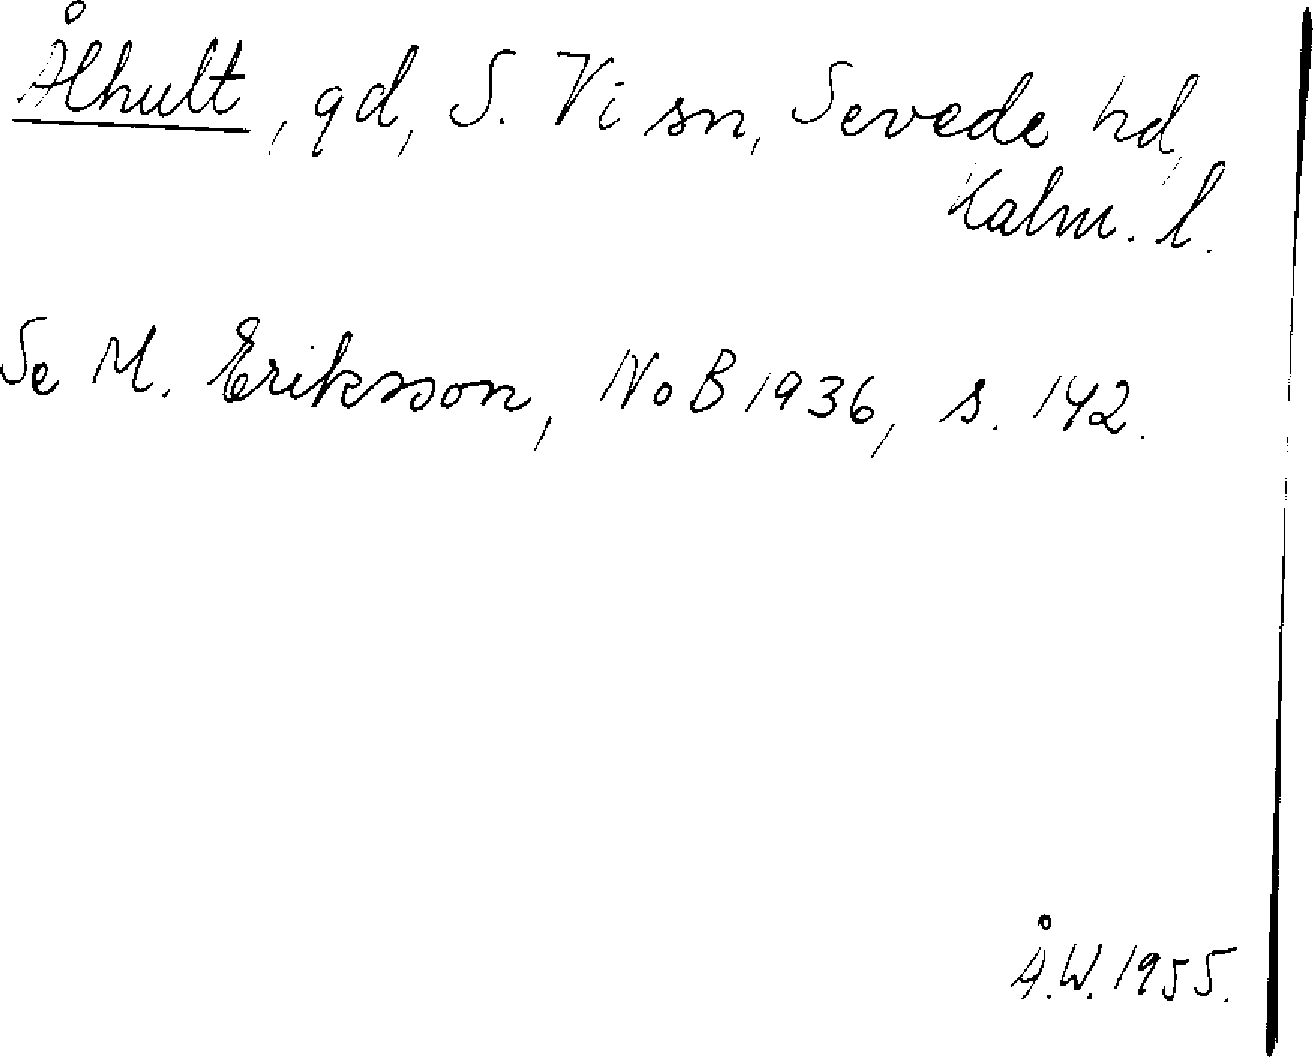 Ålhult, gd, S. Vi sn, Sevede hd,
Kalm. l.
Se M. Eriksson, NoB 1936, s. 142.
Å.W. 1955.